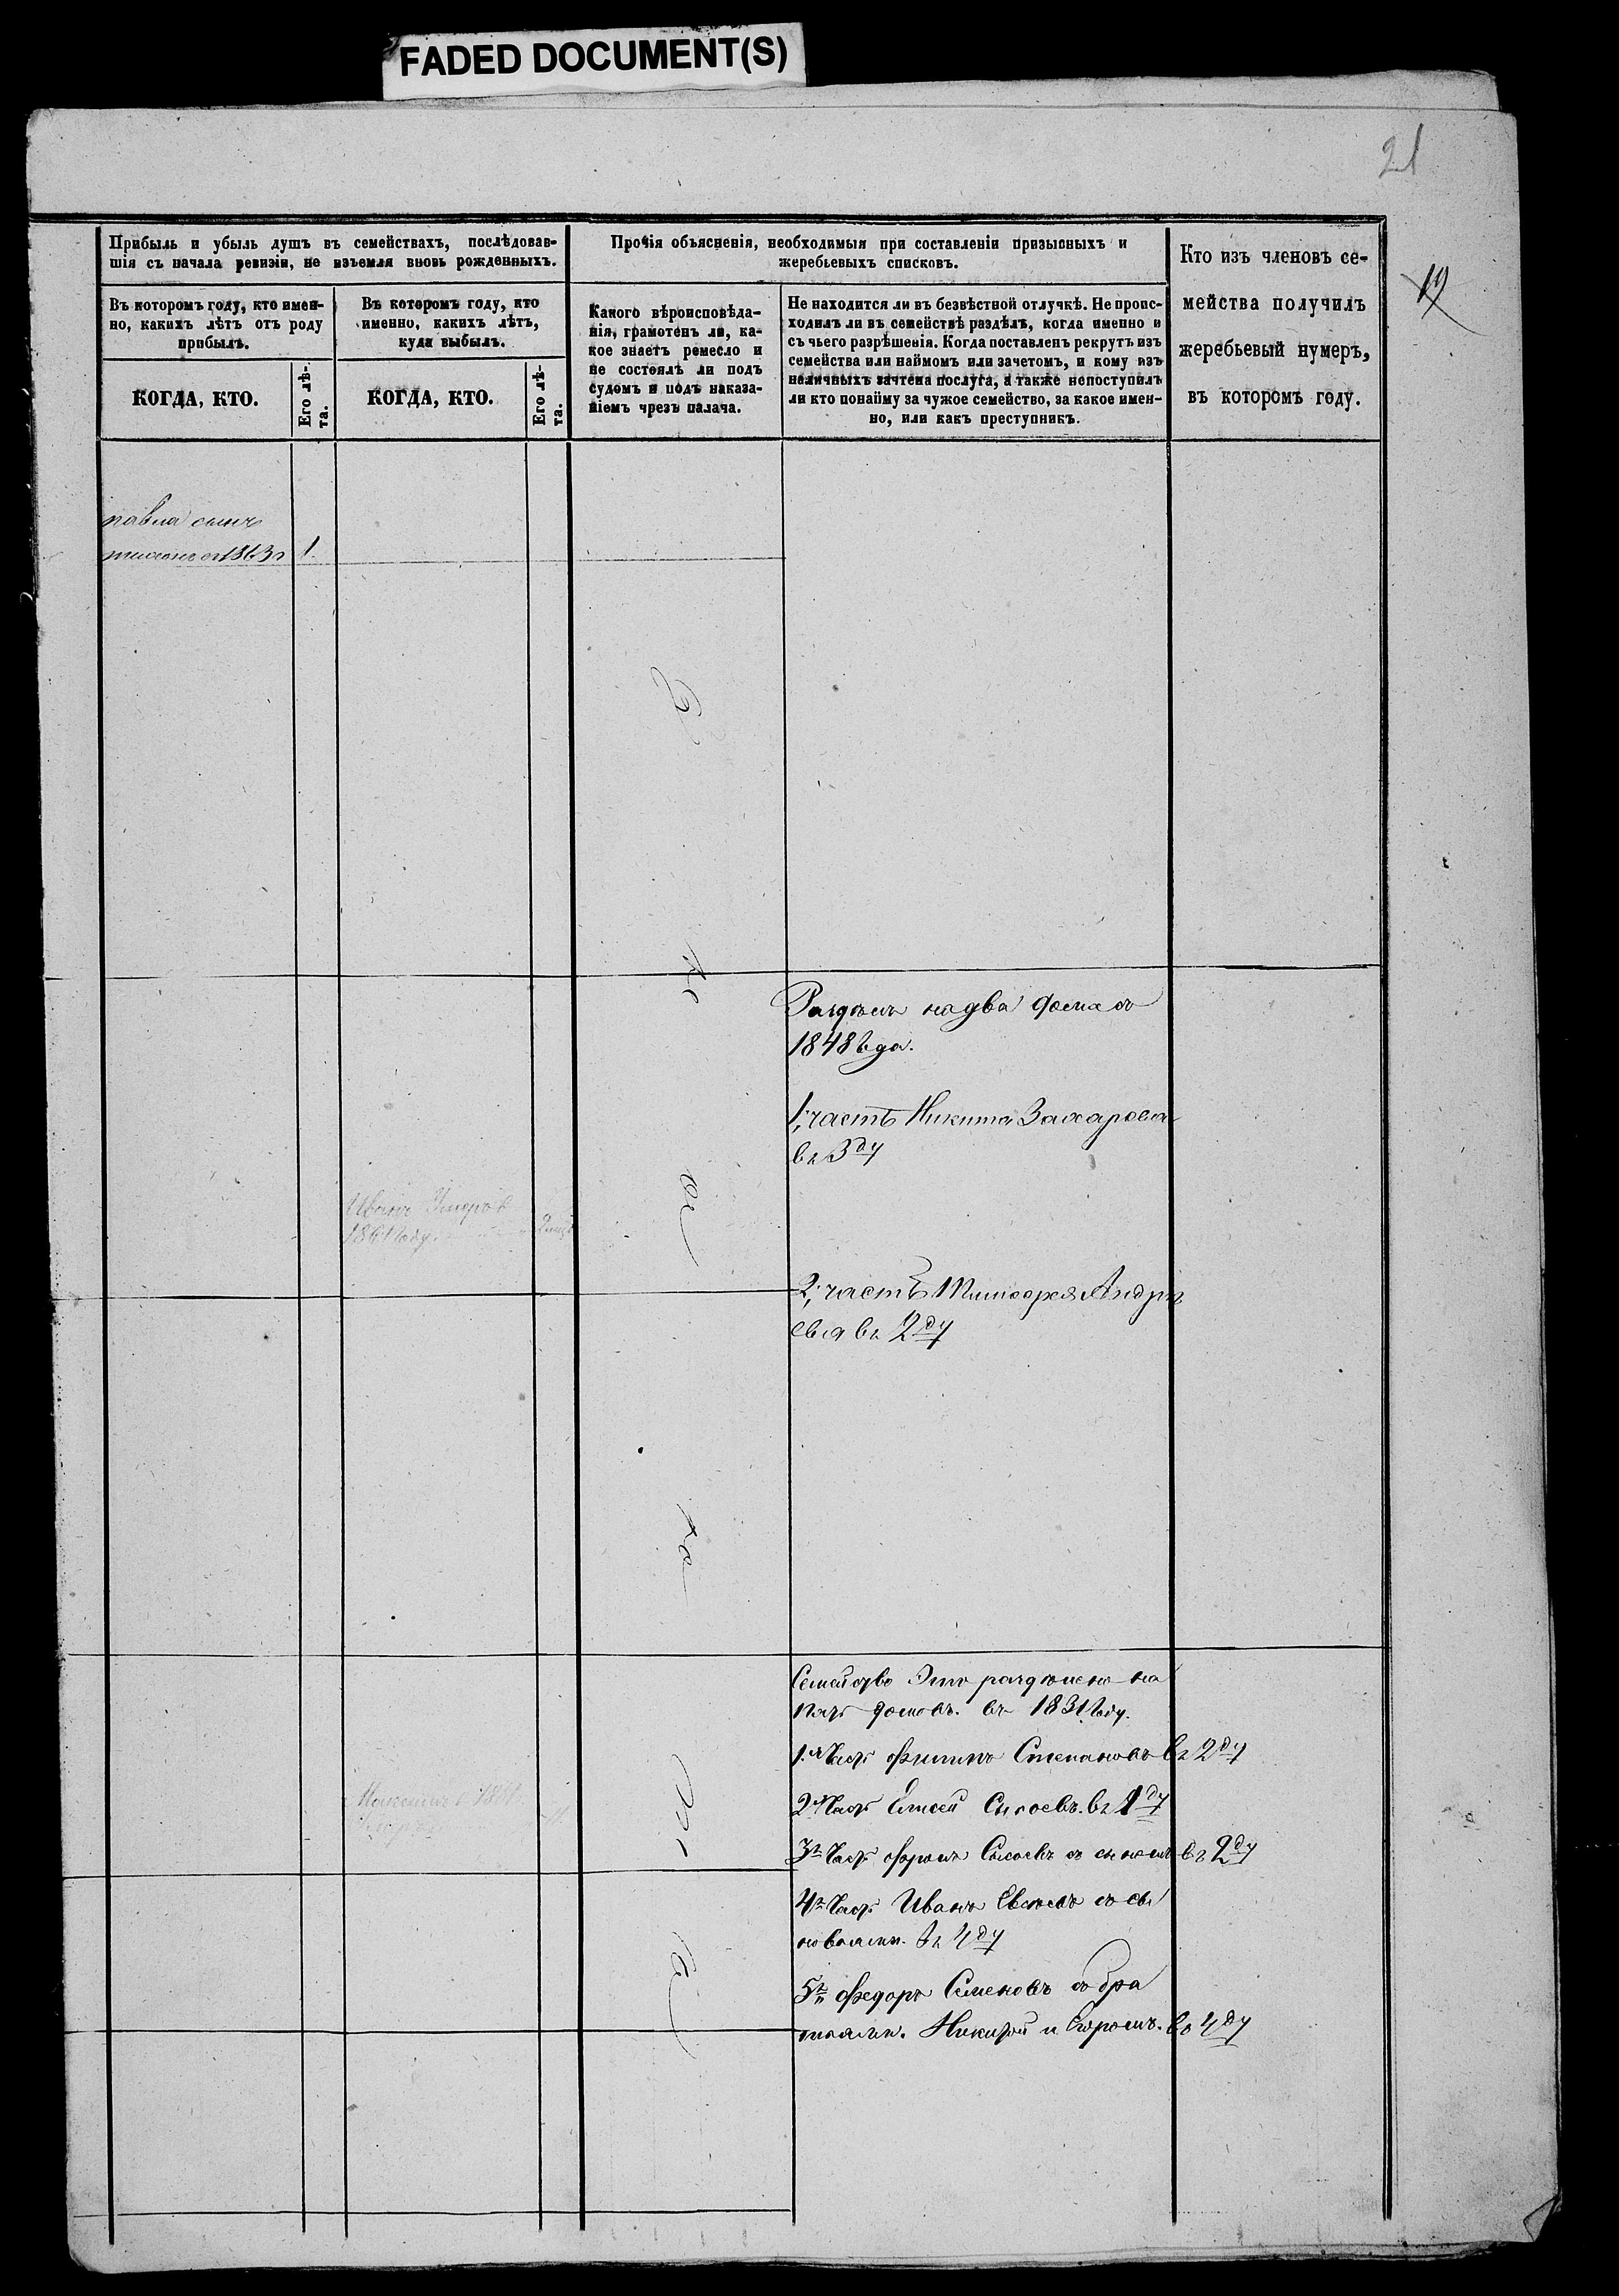 FADED DOCUMENT(S)
21
19
Прибыль и убыль душъ въ семействахъ, послѣдовав-
шія съ начала ревизіи, не изъемля вновь рожденныхъ.
Прочія объясненія, необходимыя при составленіи призывныхъ и
жеребьевыхъ списковъ.
Кто изъ членовъ се-
мейства получилъ
жеребьевый нумеръ,
въ которомъ году.
Въ которомъ году, кто имен-
но, какихъ лѣтъ отъ роду
прибылъ.
Въ которомъ году, кто
именно, какихъ лѣтъ,
куда выбылъ.
Какого вѣроисповѣда-
нія, грамотенъ ли, ка-
кое знаетъ ремесло и
не состоялъ ли подъ
судомъ и подъ наказа-
ніемъ чрезъ палача.
Не находится ли въ безвѣстной отлучкѣ. Не проис-
ходилъ ли въ семействѣ раздѣлъ, когда именно и
съ чьего разрѣшенія. Когда поставленъ рекрутъ изъ
семейства или наймомъ или зачетомъ, и кому изъ
наличныхъ зачтена послуга, а также непоступилъ
ли кто понайму за чужое семейство, за какое имен-
но, или какъ преступникъ.
КОГДА, КТО.
Его лѣ-
та.
КОГДА, КТО.
Его лѣ-
та.
павла сынъ
тихонъ 1863 1
Раздѣлъ на два дома съ
1848 года.
1, часть Никита Захарова
въ 3ду
Иванъ
1861 году.
2, часть Тимофея Андрѣ
ева въ 2ду
Семейство Это раздѣлено на
пять домовъ. въ 1831 году.
1я Часть Филипъ Степановъ въ 2ду
2я Часть Елисей Сысоевъ. въ 1ду
3я Часть Фролъ Сысоевъ съ сыномъ въ 2ду
4я Часть Иванъ съ сы
новьями. въ 4ду
5я Федоръ Семеновъ съ бра
тьями. Никитой и въ 4ду